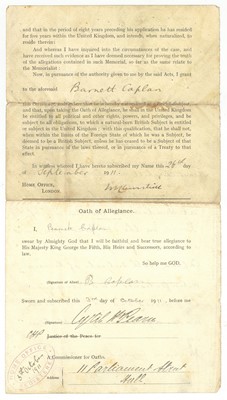 and that in the period of eight years preceding his application he has resided
for five years within the United Kingdom, and intends, when naturalized, to
reside therein:
And whereas I have inquired into the circumstances of the case, and
have received such evidence as I have deemed necessary for proving the truth
of the allegations contained in such Memorial, so far as the same relate to
the Memorialist:
Now, in pursuance of the authority given to me by the said Acts, I grant
to the aforesaid
Barnett Caplan
this Certificate, and declare that he is hereby naturalized as a British Subject,
and that, upon taking the Oath of Allegiance, he shall in the United Kingdom
be entitled to all political and other rights, powers, and privileges, and be
subject to all obligations, to which a natural-born British Subject is entitled
or subject in the United Kingdom; with this qualification, that he shall not,
when within the limits of the Foreign State of which he was a Subject, be
deemed to be a British Subject, unless he has ceased to be a Subject of that
State in pursuance of the laws thereof, or in pursuance of a Treaty to that
effect.
In witness whereof I have hereto subscribed my Name this 26th day
of September 1911.
HOME OFFICE,
LONDON.
Oath of Allegiance.
I, Barnett Caplan
swear by Almighty God that I will be faithful and bear true allegiance to
His Majesty King George the Fifth, His Heirs and Successors, according to
law.
So help me GOD.
(Signature of Alien) B. Caplan
Sworn and subscribed this 2nd day of October 1911, before me
(Signature)
Justice of the Peace for
A Commissioner for Oaths.
Address 11 Parliament Street
Hull